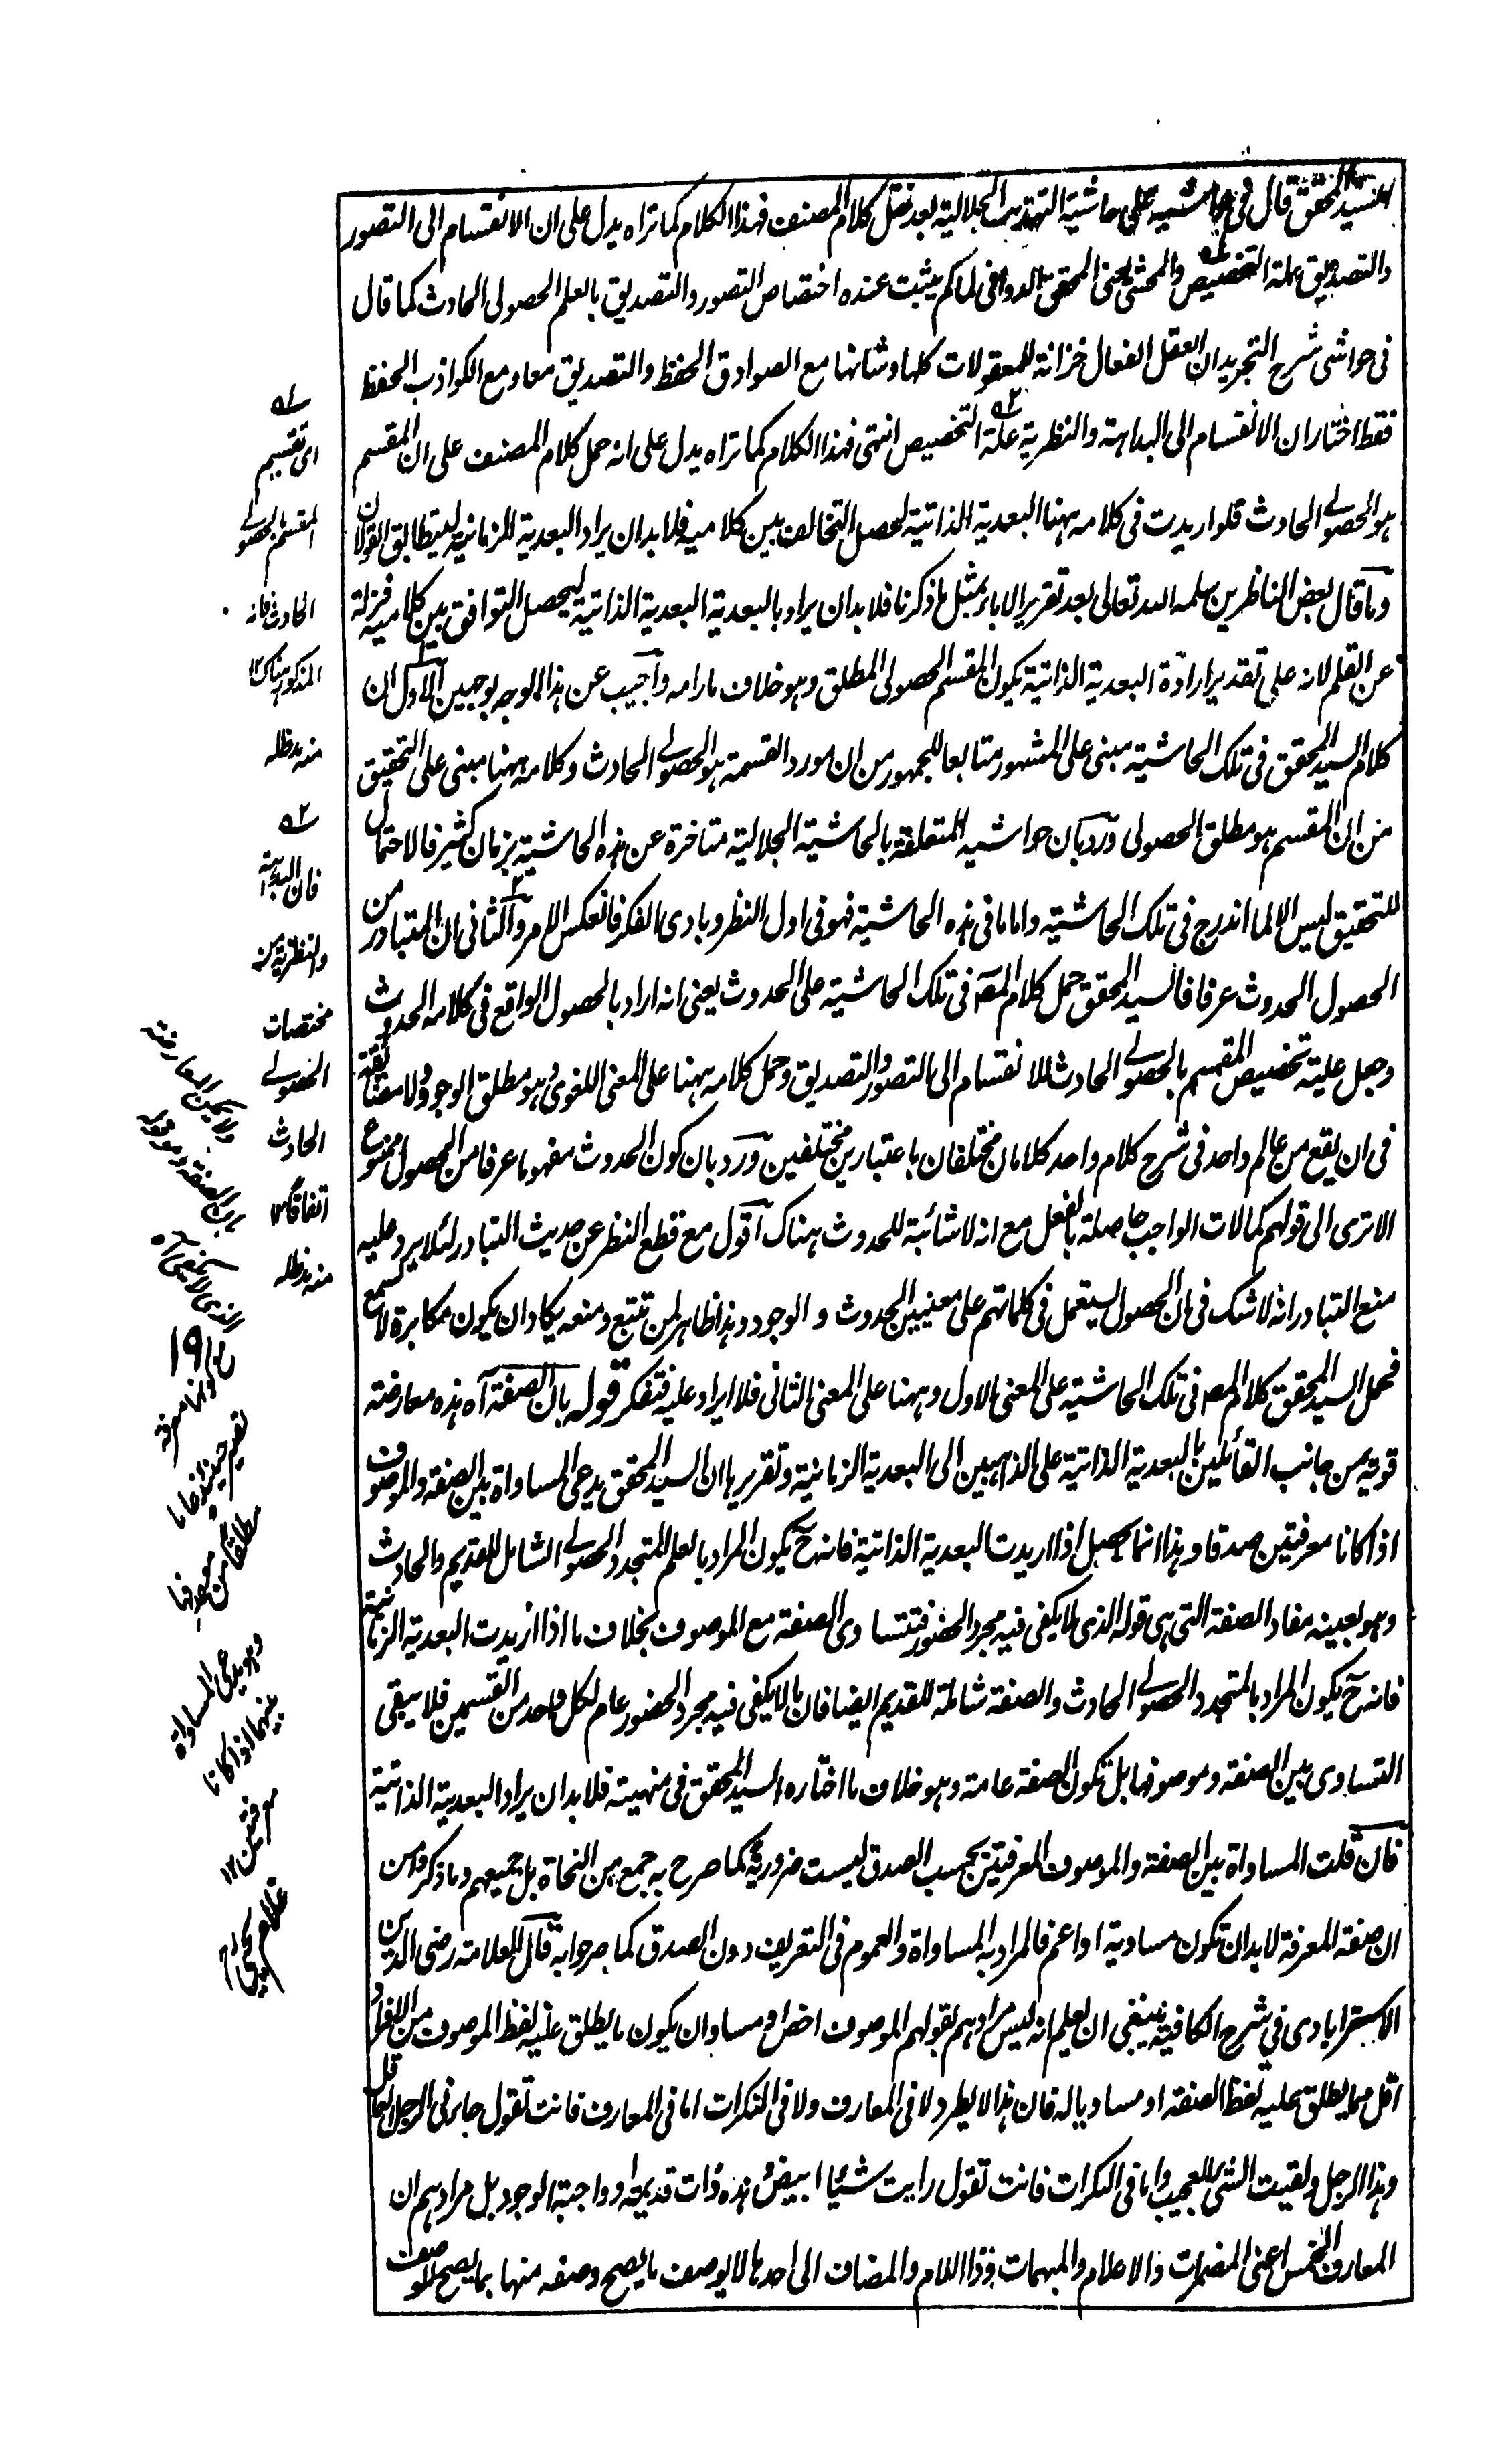 السيد المحقق قال في حاشيته على حاشية التهذيب الجلالية بعد نقل كلام المصنف فهذا الكلام كما تراه يدل على ان الانقسام الى التصور
والتصديق علة التخصيص والمحشي اعني المحقق الدواني لما لم يثبت عنده اختصاص التصور والتصديق بالعلم الحصولي الحادث كما قال
في حواشي شرح التجريد ان العقل الفعال خزانة للمعقولات كلها وشانها مع الصوادق الحفظ والتصديق معا ومع الكواذب الحفظ
فقط اختار ان الانقسام الى البداهة والنظرية علة التخصيص انتهى فهذا الكلام كما تراه يدل على انه حمل كلام المصنف على ان المقسم
هو الحصولي الحادث فلو اريدت في كلامه ههنا البعدية الذاتية لحصل التخالف بين كلاميه فلا بد ان يراد البعدية الزمانية ليتطابق القولان
وما قال بعض الناظرين سلمه الله تعالى بعد تقرير الايراد بمثل ما ذكرنا فلا بد ان يراد بالبعدية البعدية الذاتية ليحصل التوافق بين كلاميه فزلة
عن القلم لانه على تقدير ارادة البعدية الذاتية يكون المقسم الحصولي المطلق وهو خلاف ما رامه واجيب عن هذا الوجه بوجهين الاول ان
كلام السيد المحقق في تلك الحاشية مبني على المشهور متابعا للجمهور من ان مورد القسمة هو الحصولي الحادث وكلامه ههنا مبني على التحقيق
من ان المقسم هو مطلق الحصولي ورد بان حواشيه المتعلقة بالحاشية الجلالية متاخرة عن هذه الحاشية بزمان كثير فالاحتمال
للتحقيق ليس الا لما اندرج في تلك الحاشية واما ما في هذه الحاشية فهو في اول النظر وبادي الفكر فانعكس الامر والثاني ان المتبادر من
الحصول الحدوث عرفا فالسيد المحقق حمل كلام المصـ في تلك الحاشية على الحدوث يعني انه اراد بالحصول الواقع في كلامه الحدوث
وجعل علية تخصيص المقسم بالحصولي الحادث للانقسام الى التصور والتصديق وحمل كلامه ههنا على المعنى اللغوي وهو مطلق الوجود ولا مضائقة
في ان يقع من عالم واحد في شرح كلام واحد كلامان مختلفان باعتبارين مختلفين ورد بان كون الحدوث مفهوما عرفا من الحصول ممنوع
الا ترى الى قولهم كمالات الواجب حاصلة بالفعل مع انه لا شائبة للحدوث هناك اقول مع قطع النظر عن حديث التبادر لئلا يرد عليه
منع التبادر انه لا شك في ان الحصول يستعمل في كلماتهم على معنيين الحدوث والوجود وهذا ظاهر لمن تتبع ومنعه يكاد ان يكون مكابرة لا تسمع
فحمل السيد المحقق كلام المصـ في تلك الحاشية على المعنى الاول وههنا على المعنى الثاني فلا ايراد عليه فتفكر قوله بان الصفة آه هذه معارضة
قوية من جانب القائلين بالبعدية الذاتية على الذاهبين الى البعدية الزمانية وتقريرها ان السيد المحقق يدعي المساواة بين الصفة والموصوف
اذا كانا معرفتين صدقا وهذا انما يحصل اذا اريدت البعدية الذاتية فانه ح يكون المراد بالعلم المتجدد الحصولي الشامل للقديم والحادث
وهو بعينه مفاد الصفة التي هي قوله الذي لا يكفي فيه مجرد الحضور فتتساوى الصفة مع الموصوف بخلاف ما اذا اريدت البعدية الزمانية
فانه ح يكون المراد بالمتجدد الحصولي الحادث والصفة شاملة للقديم ايضا فان ما لا يكفي فيه مجرد الحضور عام لكل واحد من القسمين فلا يبقى
التساوي بين الصفة وموصوفها بل تكون الصفة عامة وهو خلاف ما اختاره السيد المحقق في منهيته فلا بد ان يراد البعدية الذاتية
فان قلت المساواة بين الصفة والموصوف المعرفتين بحسب الصدق ليست ضرورية كما صرح به جمع من النحاة بل جميعهم وما ذكروا من
ان صفة المعرفة لا بد ان تكون مساوية او اعم فالمراد به المساواة والعموم في التعريف دون الصدق كما صرحوا به قال العلامة رضي الدين
الاسترابادي في شرح الكافية ينبغي ان يعلم انه ليس مرادهم بقولهم الموصوف اخص او مساو ان يكون ما يطلق عليه لفظ الموصوف من الافراد
اقل مما يطلق عليه لفظ الصفة او مساويا له فان هذا لا يطرد لا في المعارف ولا في النكرات اما في المعارف فانت تقول جاءني الرجل العاقل
وهذا الرجل ولقيت الشيء العجيب واما في النكرات فانت تقول رايت شيئا ابيض وهذه ذات قديمة او واجبة الوجود بل مرادهم ان
المعارف الخمس اعني المضمرات والاعلام والمبهمات وذا اللام والمضاف الى احدها لا يوصف ما يصح وصفه منها بما يصح للوصف
سله
اي تقسيم
المقسم بالحصولي
الحادث فانه
المذكور هناك ١٢
منه مد ظله
سله ٢
فان البداهة
والنظرية من
مختصات
الحصولي
الحادث
اتفاقا ١٢
منه مد ظله
ولا يمكن المعارضة
بان الصفة
الذي لا يكفي آه
١٩
وهو يدعي المساواة
بينهما اذا كانا
معرفتين ١٢